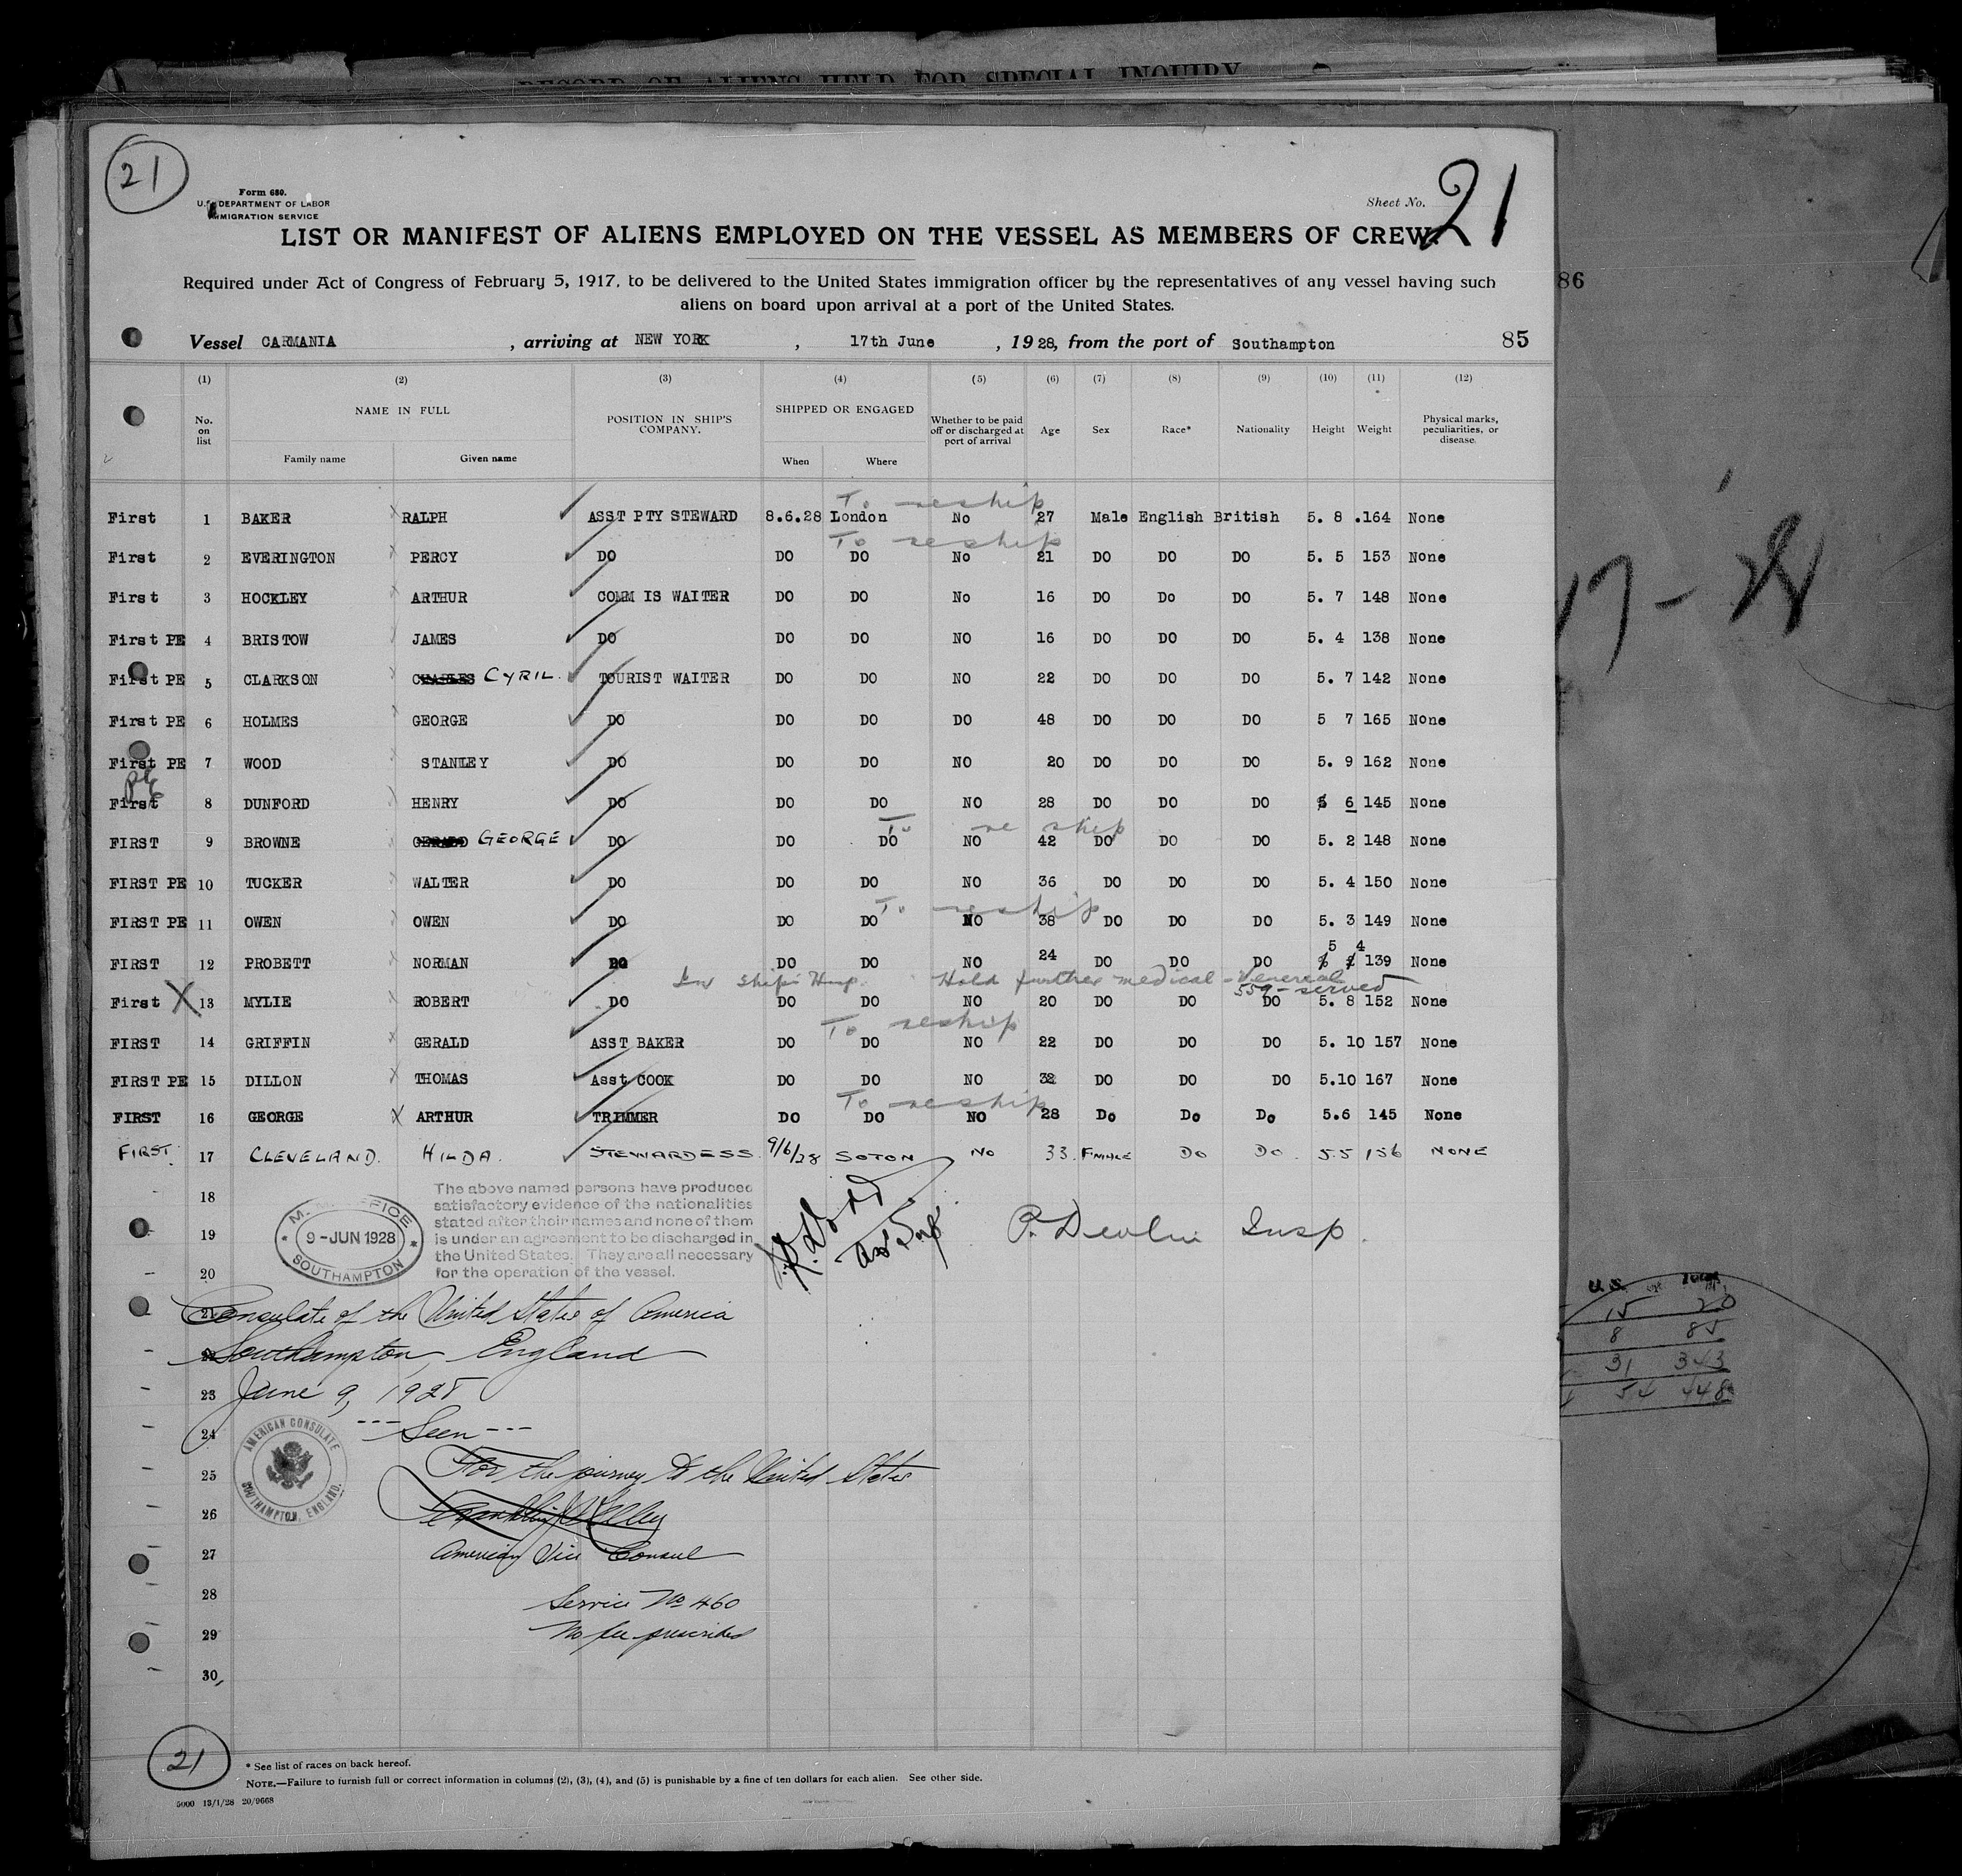 RECORD OF ALIENS HELD FOR SPECIAL INQUIRY
21
Form 680.
U.S. DEPARTMENT OF LABOR
IMMIGRATION SERVICE
Sheet No. 21
LIST OR MANIFEST OF ALIENS EMPLOYED ON THE VESSEL AS MEMBERS OF CREW.
Required under Act of Congress of February 5, 1917, to be delivered to the United States immigration officer by the representatives of any vessel having such
aliens on board upon arrival at a port of the United States.
86
Vessel CARMANIA, arriving at NEW YORK, 17th June, 1928, from the port of Southampton 85
(1) (2) (3) (4) (5) (6) (7) (8) (9) (10) (11) (12)
No. on list NAME IN FULL POSITION IN SHIP'S COMPANY. SHIPPED OR ENGAGED Whether to be paid off or discharged at port of arrival Age Sex Race* Nationality Height Weight Physical marks, peculiarities, or disease.
Family name Given name When Where
To reship
First 1 BAKER RALPH ASST PTY STEWARD 8.6.28 London No 27 Male English British 5. 8 .164 None
To reship
First 2 EVERINGTON PERCY DO DO DO No 21 DO DO DO 5. 5 153 None
First 3 HOCKLEY ARTHUR COMM IS WAITER DO DO No 16 DO Do DO 5. 7 148 None
First PE 4 BRISTOW JAMES DO DO DO NO 16 DO DO DO 5. 4 138 None
First PE 5 CLARKSON CHARLES CYRIL. TOURIST WAITER DO DO NO 22 DO DO DO 5. 7 142 None
First PE 6 HOLMES GEORGE DO DO DO DO 48 DO DO DO 5 7 165 None
First PE 7 WOOD STANLEY DO DO DO NO 20 DO DO DO 5. 9 162 None
PE
First 8 DUNFORD HENRY DO DO DO NO 28 DO DO DO 5 6 145 None
To reship
FIRST 9 BROWNE GEORGE DO DO DO NO 42 DO DO DO 5. 2 148 None
FIRST PE 10 TUCKER WALTER DO DO DO NO 36 DO DO DO 5. 4 150 None
To reship
FIRST PE 11 OWEN OWEN DO DO DO NO 38 DO DO DO 5. 3 149 None
FIRST 12 PROBETT NORMAN DO DO DO NO 24 DO DO DO 5 4 139 None
In Ship's Hosp. Hold further medical - Venereal
559 - served
First X 13 MYLIE ROBERT DO DO DO NO 20 DO DO DO 5. 8 152 None
To reship
FIRST 14 GRIFFIN GERALD ASST BAKER DO DO NO 22 DO DO DO 5. 10 157 None
FIRST PE 15 DILLON THOMAS Asst COOK DO DO NO 32 DO DO DO 5.10 167 None
To reship
FIRST 16 GEORGE ARTHUR TRIMMER DO DO NO 28 Do Do Do 5.6 145 None
FIRST. 17 CLEVELAND. HILDA. STEWARDESS. 9/6/28 SOTON No 33. FMALE Do Do. 5.5 136 NONE
18
19
20
The above named persons have produced
satisfactory evidence of the nationalities
stated after their names and none of them
is under an agreement to be discharged in
the United States. They are all necessary
for the operation of the vessel.
OFFICE
9-JUN 1928
SOUTHAMPTON
P. Devlin Insp.
21
Consulate of the United States of America
22
Southampton, England
23 June 9, 1928
24 ---Seen---
AMERICAN CONSULATE
SOUTHAMPTON, ENGLAND.
25 For the journey to the United States
26
27 American Vice Consul
28 Service No 460
29 No fee prescribed
30
17-28
U.S. Total
15 20
8 85
31 343
54 448
21
* See list of races on back hereof.
NOTE.—Failure to furnish full or correct information in columns (2), (3), (4), and (5) is punishable by a fine of ten dollars for each alien. See other side.
5000 13/1/28 20/9668